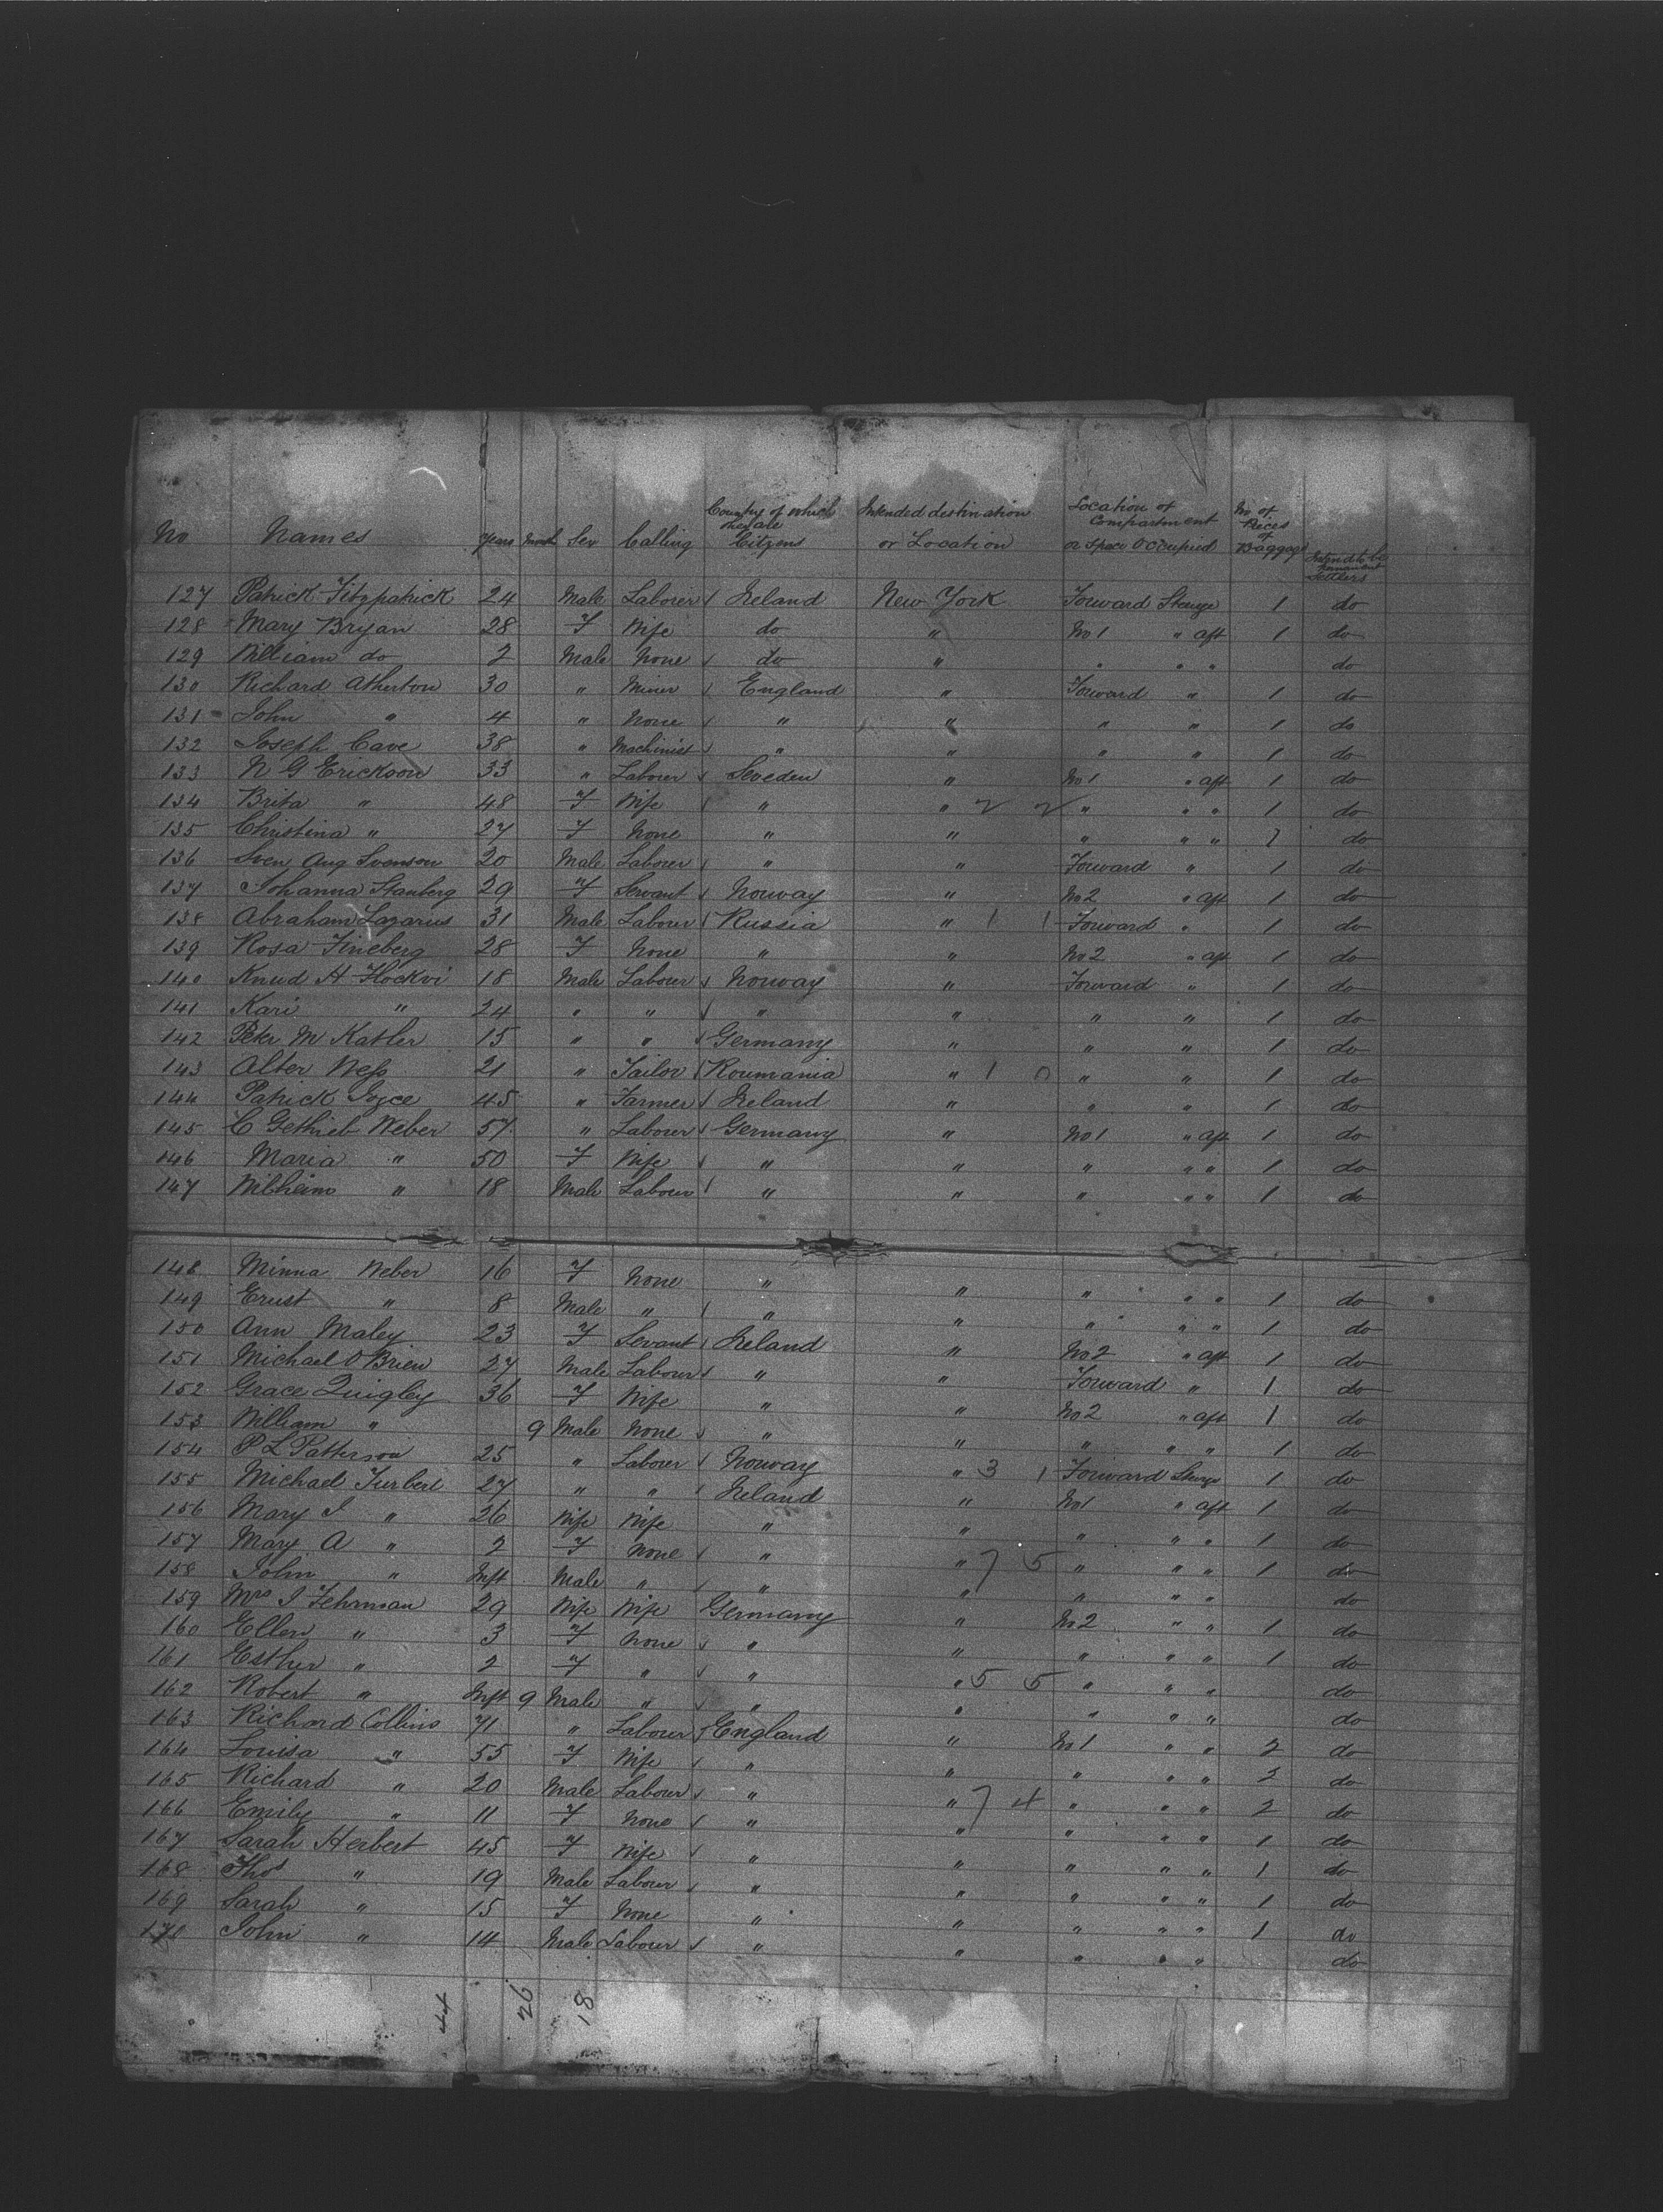 No Names Years Month Sex Calling Country of which they are Citizens Intended destination or Location Location of Compartment or Space Occupied No of Pieces of Baggage Intend to be Permanent Settlers
127 Patrick Fitzpatrick 24 Male Laborer Ireland New York Forward Steerage 1 do
128 Mary Bryan 28 F Wife do " No 1 " aft 1 do
129 William do 2 Male None do " " " " do
130 Richard Atherton 30 " Miner England " Forward " 1 do
131 John " 4 " None " " " " 1 do
132 Joseph Cave 38 " Machinist " " " " 1 do
133 N G Erickson 33 " Labourer Sweden " No 1 " aft 1 do
134 Brita " 48 F Wife " " 2 2 " " " 1 do
135 Christina " 27 F None " " " " " 1 do
136 Sven Aug Svenson 20 Male Labourer " " Forward " 1 do
137 Johanna Stanberg 29 F Servant Norway " No 2 " aft 1 do
138 Abraham Lazarus 31 Male Labour Russia " 1 1 Forward " 1 do
139 Rosa Fineberg 28 F None " " No 2 " aft 1 do
140 Knud H Flockvi 18 Male Labour Norway " Forward " 1 do
141 Kari " 24 " " " " " " 1 do
142 Peter M Katler 15 " " Germany " " " 1 do
143 Alter Ness 21 " Tailor Roumania " 1 0 " " 1 do
144 Patrick Joyce 45 " Farmer Ireland " " " 1 do
145 C Gethieb Weber 57 " Labour Germany " No 1 " aft 1 do
146 Maria " 50 F Wife " " " " " 1 do
147 Wilheim " 18 Male Labour " " " " " 1 do
148 Minna Weber 16 F None " " " " " 1 do
149 Ernst " 8 Male " " " " " " 1 do
150 Ann Maley 23 F Servant Ireland " No 2 " aft 1 do
151 Michael O Brien 27 Male Labour " " Forward " 1 do
152 Grace Quigley 36 F Wife " " No 2 " aft 1 do
153 William " 9 Male None " " " " " 1 do
154 P L Patterson 25 " Labour Norway " 3 1 Forward Steerage 1 do
155 Michael Turbert 27 " " Ireland " No 1 " aft 1 do
156 Mary J " 26 Wife Wife " " " " " 1 do
157 Mary A " 2 F None " " 7 5 " " " 1 do
158 John " Inft Male " " " " " " do
159 Mrs J Fehrman 29 Wife Wife Germany " No 2 " " 1 do
160 Ellen " 3 F None " " " " " 1 do
161 Esther " 2 F " " " 5 5 " " " do
162 Robert " Inft 9 Male " " " " " " do
163 Richard Collins 71 " Labour England " No 1 " " 2 do
164 Louisa " 55 F Wife " " " " " 2 do
165 Richard " 20 Male Labour " " 7 4 " " " 2 do
166 Emily " 11 F None " " " " " 1 do
167 Sarah Herbert 45 F Wife " " " " " 1 do
168 Thos " 19 Male Labour " " " " " 1 do
169 Sarah " 15 F None " " " " " 1 do
170 John " 14 Male Labour " " " " " do
44 26 18